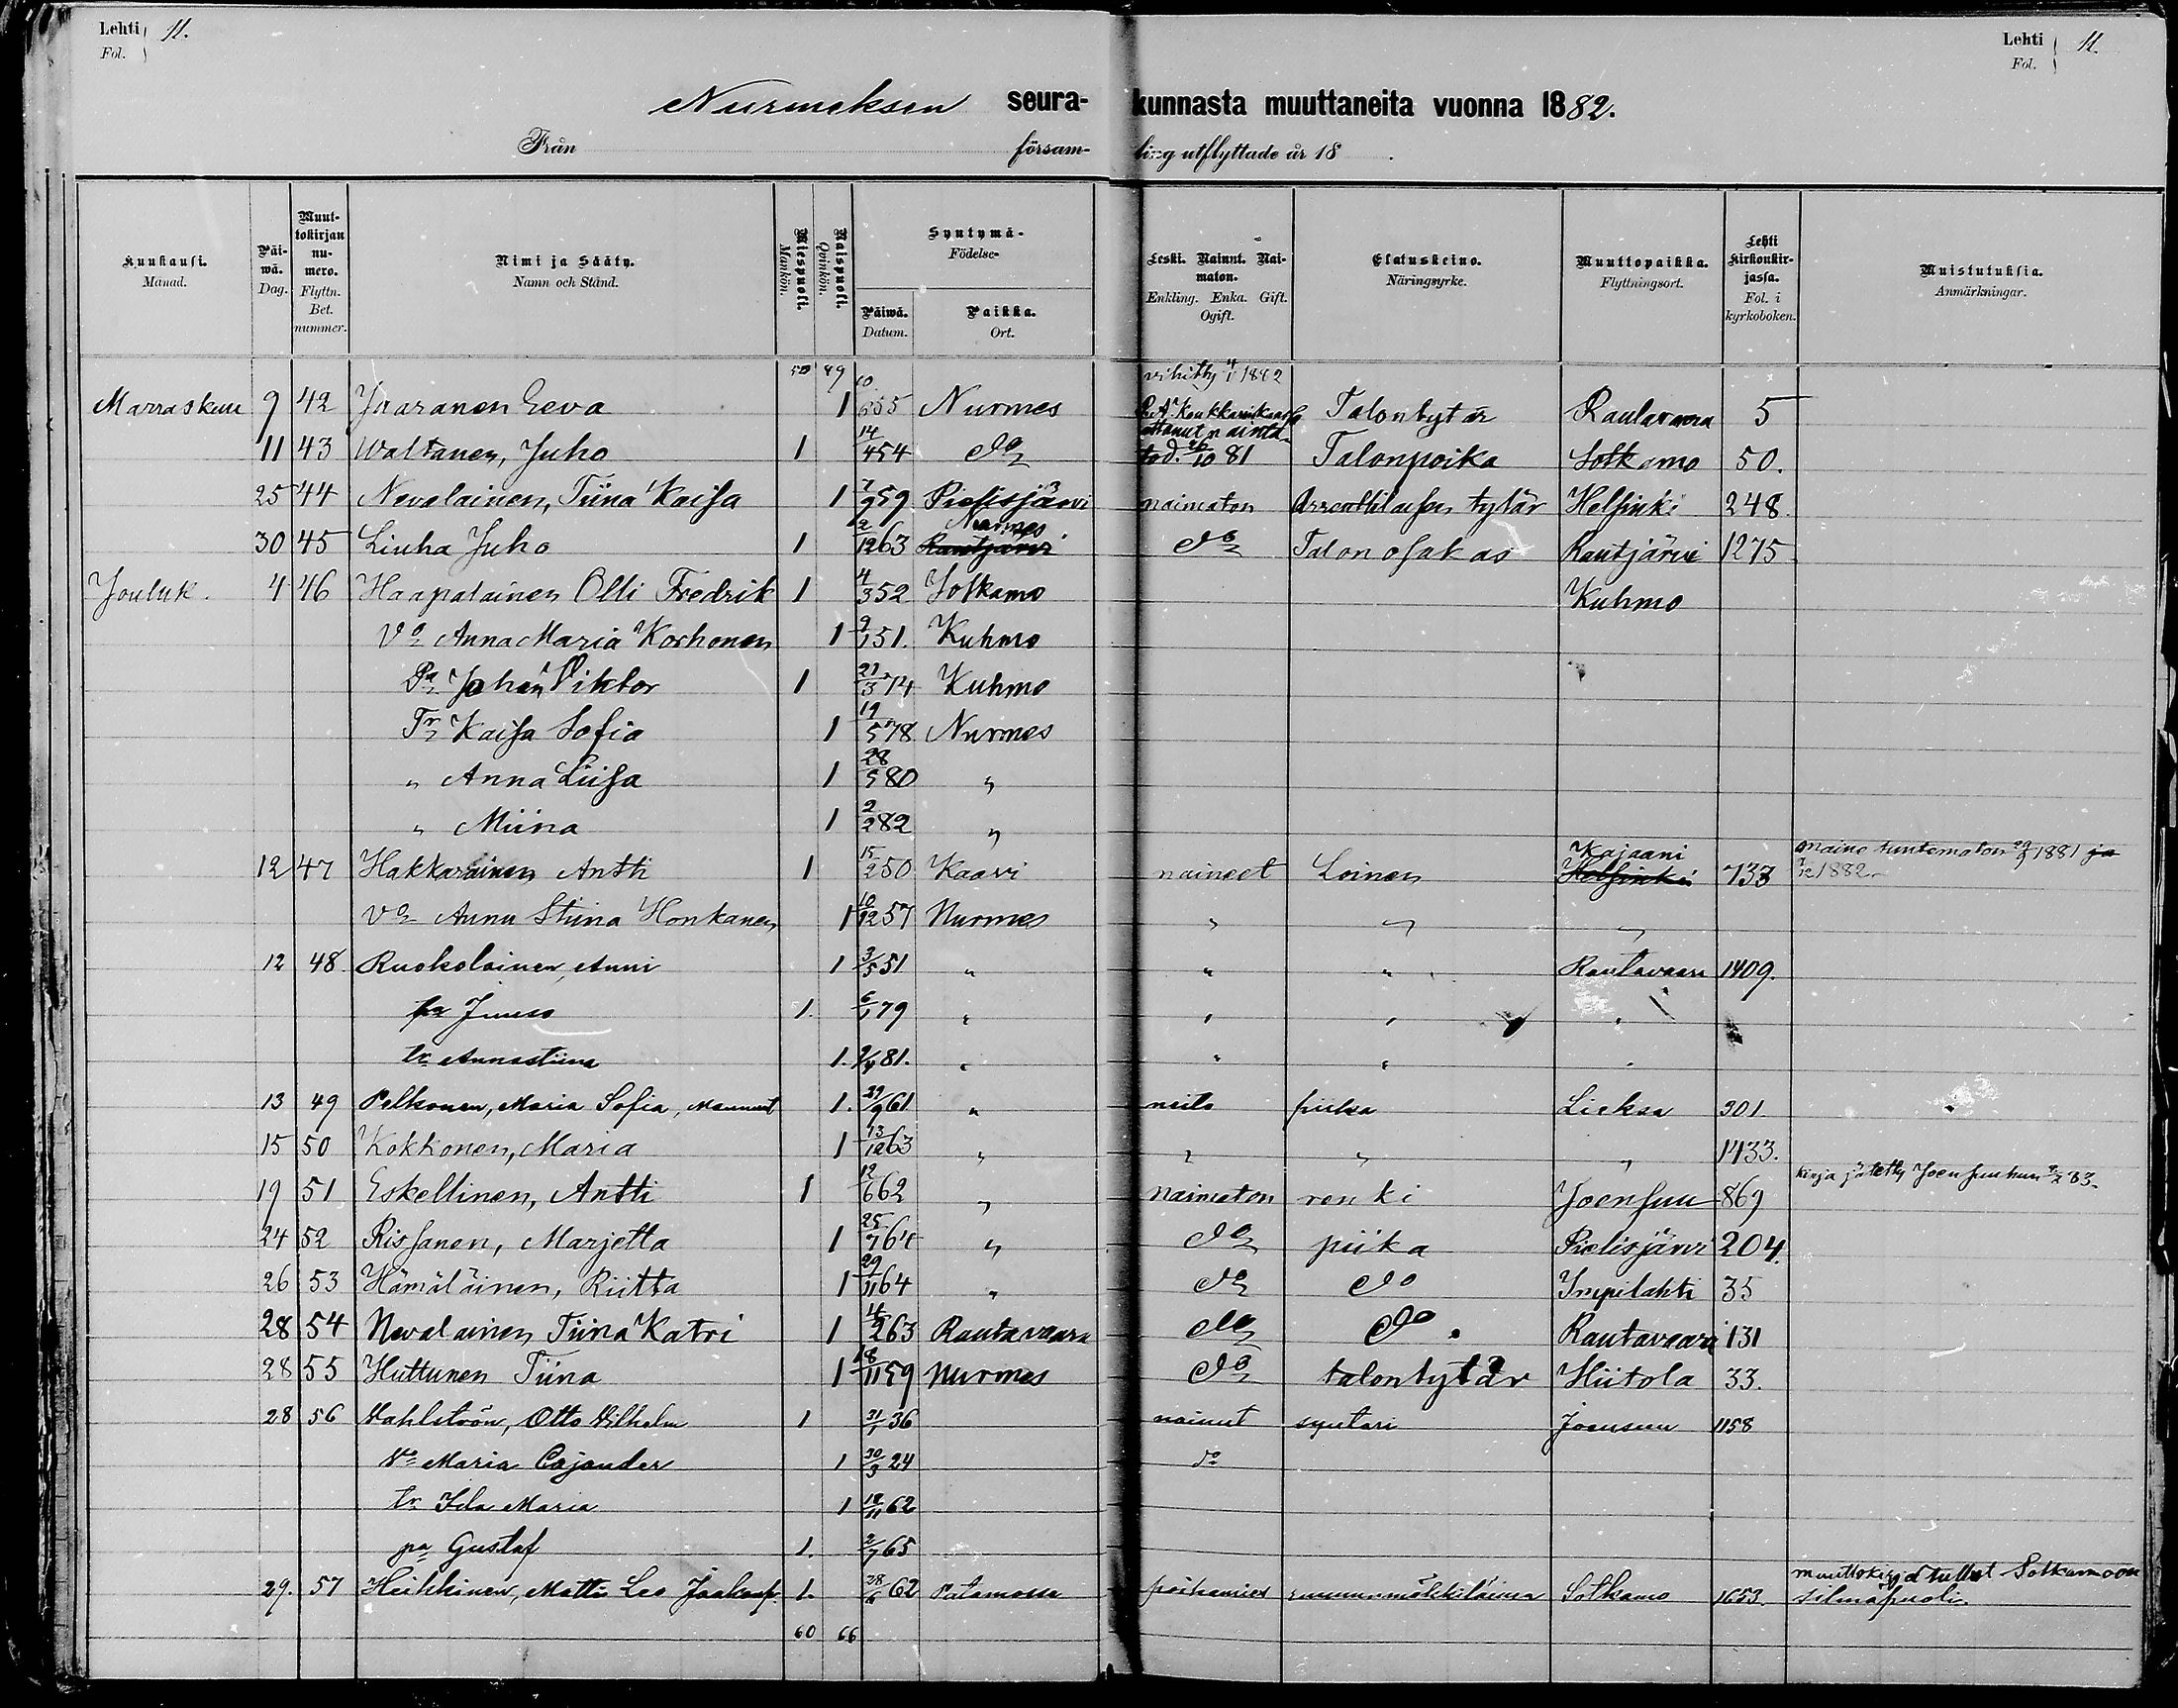 Lehti Fol. 11.
Lehti Fol. 11.
Nurmeksen seura-kunnasta muuttaneita vuonna 1882.
Från församling utflyttade år 18 .
Kuukausi. Månad. | Päiwä. Dag. | Muuttokirjan numero. Flyttn. Bet. nummer. | Nimi ja Sääty. Namn och Stånd. | Miespuoli. Mankön. | Naispuoli. Qvinkön. | Syntymä- Födelse- Päiwä. Datum. | Paikka. Ort. | Leski. Nainut. Naimaton. Enkling. Enka. Gift. Ogift. | Elatuskeino. Näringsyrke. | Muuttopaikka. Flyttningsort. | Lehti Kirkonkirjassa. Fol. i kyrkoboken. | Muistutuksia. Anmärkningar.
50 49 vihitty 1882
Marraskuu 9 42 Jaaranen Eeva 1 10/6 55 Nurmes Talontytär Rautavaara 5
11 43 Waltanen, Juho 1 14/4 54 do tod. 26/10 81 Talonpoika Sotkamo 50.
25 44 Nevalainen, Tiina Kaisa 1 7/9 59 Pielisjärvi naimaton tytär Helsinki 248.
Nurmes
30 45 Liuha Juho 1 2/12 63 Rautjärvi do Talonosakas Rautjärvi 1275
Jouluk. 4 46 Haapalainen Olli Fredrik 1 4/3 52 Sotkamo Kuhmo
Vo Anna Maria Korhonen 1 9/1 51. Kuhmo
Pa Johan Viktor 1 21/3 74 Kuhmo
Tr Kaisa Sofia 1 19/5 78 Nurmes
" Anna Liisa 1 28/5 80 "
" Miina 1 2/2 82 "
Kajaani maine tuntematon 29/9 1881 ja
12 47 Hakkarainen Antti 1 15/2 50 Kaavi naineet Loinen Helsinki 733 1882
Vo Anna Stiina Honkanen 1 10/12 57 Nurmes " " "
12 48. Ruokolainen, Anni 1 3/5 51 " " " Rautavaara 1409.
pa Juuso 1. 6/1 79 " " " "
tr Annastiina 1. 9/4 81. " " " "
13 49 Pelkonen, Maria Sofia, 1. 29/9 61 " neito piika Lieksa 301.
15 50 Kokkonen, Maria 1 13/10 63 " " " " 1433.
19 51 Eskellinen, Antti 1 12/6 62 " naimaton renki Joensuu 869 kirja jätetty Joensuuhun 83.
24 52 Rissanen, Marjetta 1 25/7 64 " do piika Pielisjärvi 204.
26 53 Hämäläinen, Riitta 1 29/11 64 " do do Impilahti 35
28 54 Nevalainen, Tiina Katri 1 4/2 63 Rautavaara do do. Rautavaara 131
28 55 Huttunen Tiina 1 18/11 59 Nurmes do talontytär Hiitola 33.
28 56 Vahlström, Otto Vilhelm 1 31/1 36 nainut Joensuu 1158
Vo Maria Cajander 1 30/3 24 do
tr Ida Maria 1 18/11 62
pa Gustaf 1. 2/7 65
muuttokirja tullut Sotkamoon
29. 57 Heikkinen, Matti Leo Jaakonp. 1. 28/6 62 Paltamossa Sotkamo 1653. silmäpuoli.
60 66